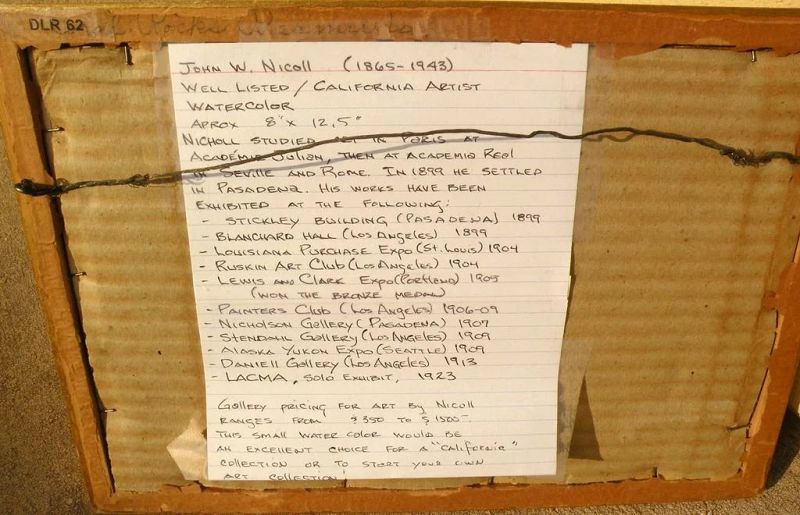 DLR 62
John W. Nicoll (1865-1943)
Well Listed / California Artist
Watercolor
Aprox 8" x 12,5"
Nicholl studied art in Paris at
Académie Julian, then at Academia Real
in Seville and Rome. In 1899 he settled
in Pasadena. His works have been
exhibited at the following:
- Stickley Building (Pasadena) 1899
- Blanchard Hall (Los Angeles) 1899
- Louisiana Purchase Expo (St. Louis) 1904
- Ruskin Art Club (Los Angeles) 1904
- Lewis and Clark Expo (Portland) 1905
(Won the Bronze Medal)
- Painters Club (Los Angeles) 1906-09
- Nicholson Gallery (Pasadena) 1907
- Stendahl Gallery (Los Angeles) 1909
- Alaska Yukon Expo (Seattle) 1909
- Daniell Gallery (Los Angeles) 1913
- LACMA, solo exhibit, 1923
Gallery pricing for art by Nicoll
ranges from $350 to $1500-
This small water color would be
an excellent choice for a "California"
collection or to start your own
art collection!